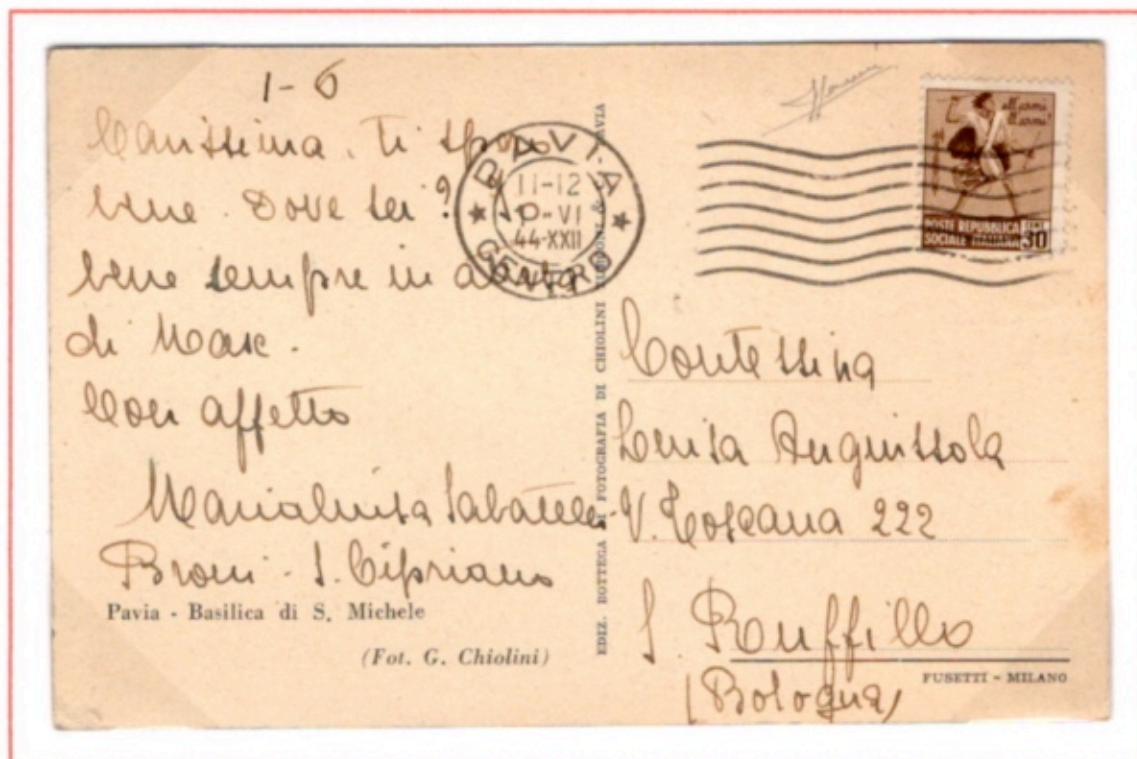 1-6
Carissima. Ti spero
bene. Dove sei? Io
bene sempre in attesa
di Max.
Con affetto
Marialuisa Sabatelli
Broni - S. Cipriano
Pavia - Basilica di S. Michele
(Fot. G. Chiolini)
PAVIA
11-12
44-XXII
CENTRO
EDIZ. BOTTEGA DI FOTOGRAFIA DI CHIOLINI & - PAVIA
all'armi
all'armi!
POSTE REPUBBLICA
SOCIALE ITALIANA
CENT. 30
Contessina
Luisa Anguissola
V. Toscana 222
S. Ruffillo
(Bologna)
FUSETTI - MILANO